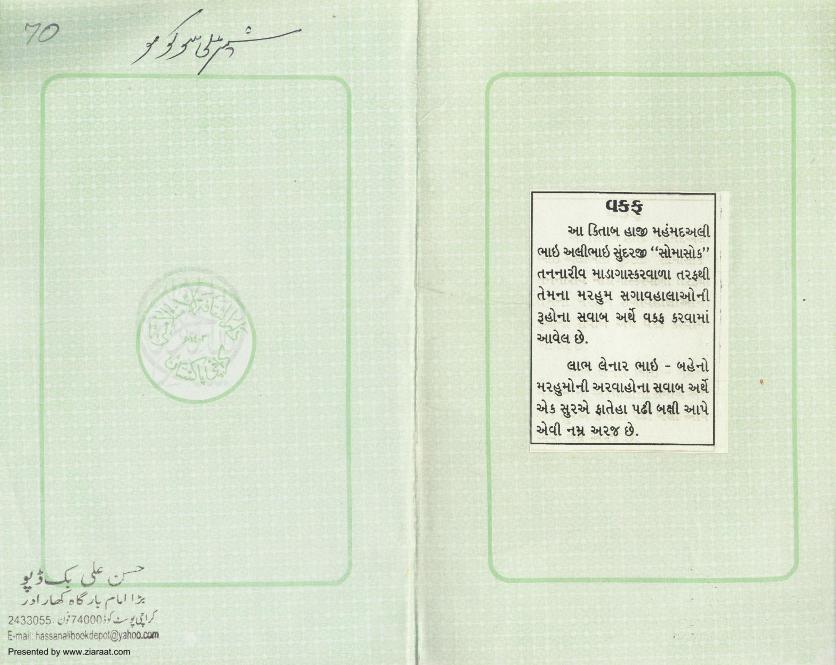 70
حسن علی بک ڈپو
بڑا امام بارگاہ کھارادر
کراچی پوسٹ کوڈ 74000 فون: 2433055
E-mail: hassanalibookdepot@yahoo.com
Presented by www.ziaraat.com
વકફ
આ કિતાબ હાજી મહંમદઅલી
ભાઇ અલીભાઇ સુંદરજી “સોમાસોક”
તનનારીવ માડાગાસ્કરવાળા તરફથી
તેમના મરહુમ સગાવહાલાઓની
રૂહોના સવાબ અર્થે વકફ કરવામાં
આવેલ છે.
લાભ લેનાર ભાઇ - બહેનો
મરહુમોની અરવાહોના સવાબ અર્થે
એક સુરએ ફાતેહા પઢી બક્ષી આપે
એવી નમ્ર અરજ છે.